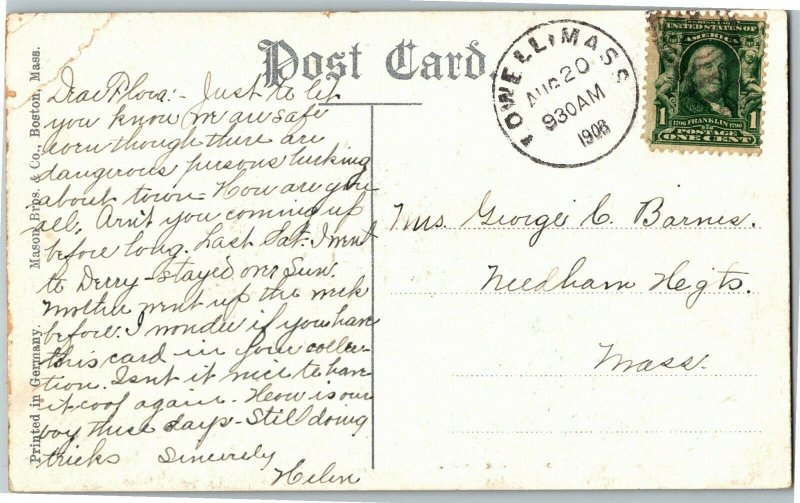 Post Card.
LOWELL, MASS.
AUG 20
930AM
1908
SERIES 1902
UNITED STATES OF
AMERICA
1 1706 FRANKLIN 1790 1
POSTAGE
ONE CENT
Printed in Germany. Mason Bros. & Co., Boston, Mass.
Dear Flora:- Just to let
you know we are safe
even though there are
dangerous persons lurking
about town- How are you
all, Arn't you coming up
before long. Last Sat. I went
to Derry- stayed over Sun.
Mother went up the week
before. I wonder if you have
this card in your collec-
tion. Isn't it nice to have
it cool again. How is our
boy these days- Still doing
tricks Sincerely
Helen
Mrs. George C. Barnes.
Needham Hegts.
Mass.